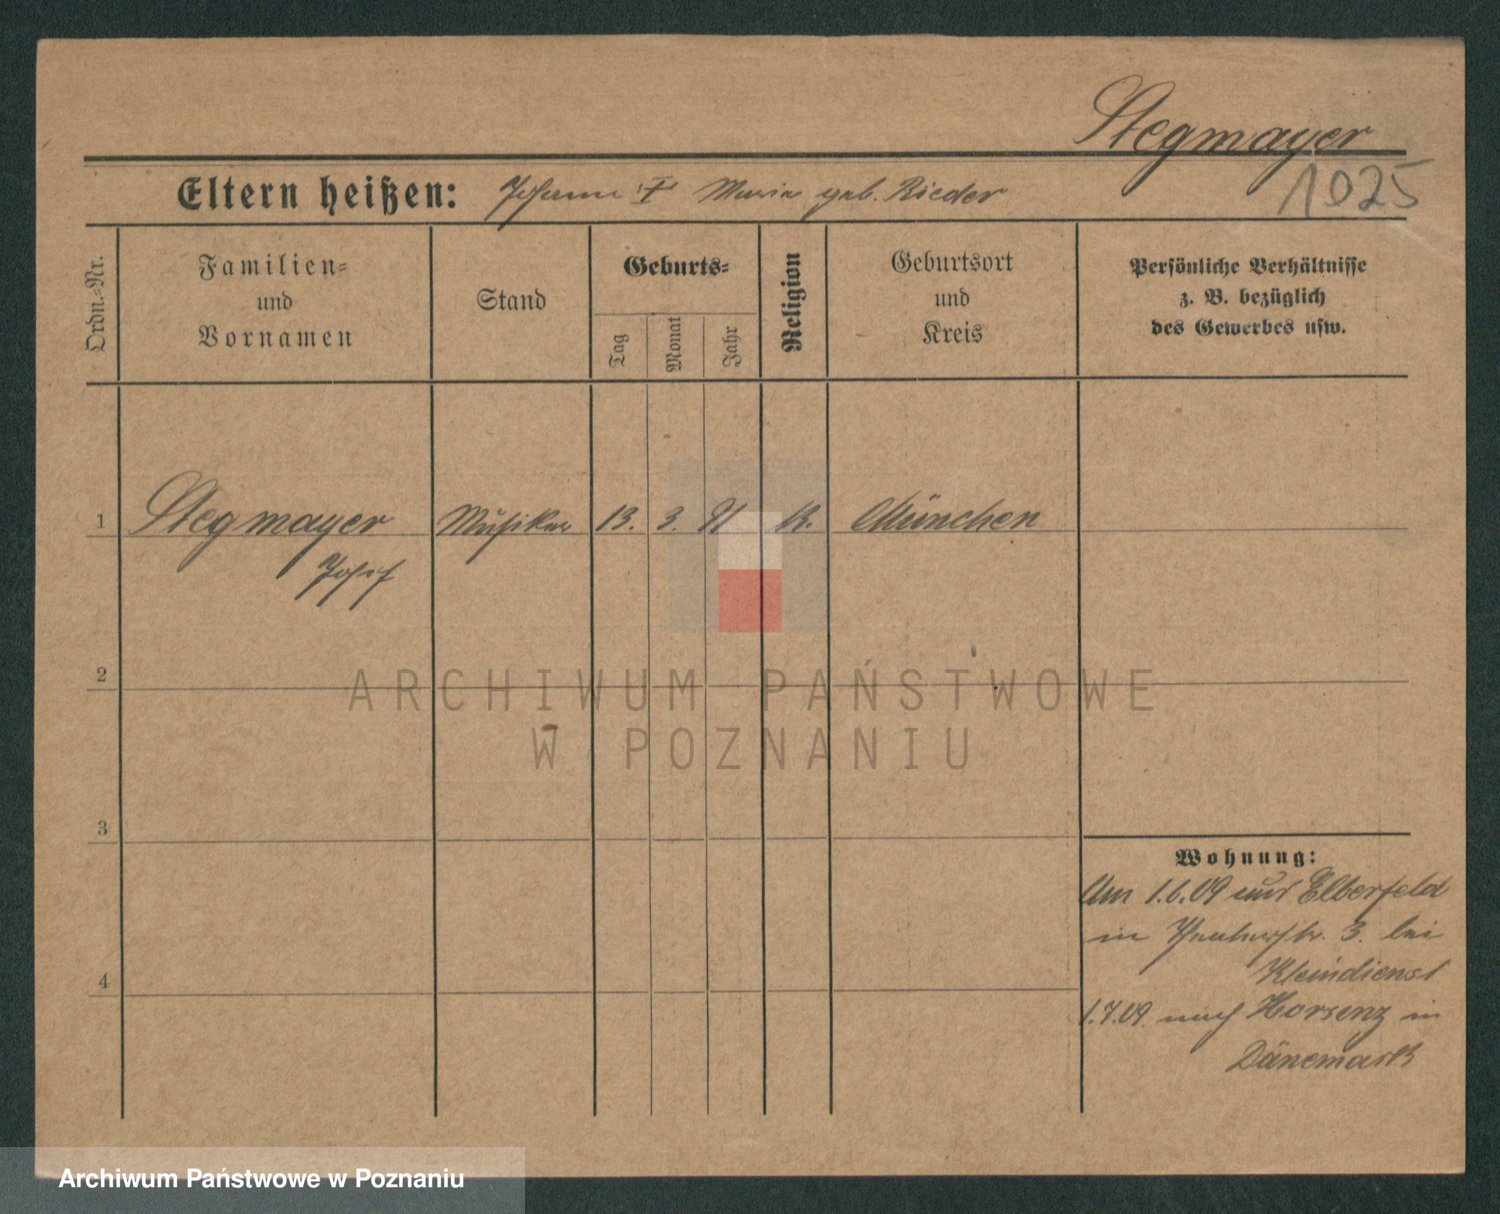 Stegmayer
1025
Eltern heißen: Johann † Maria geb. Rieder
Ordn.-Nr.
Familien-
und
Vornamen
Stand
Geburts-
Tag
Monat
Jahr
Religion
Geburtsort
und
Kreis
Persönliche Verhältnisse
z. B. bezüglich
des Gewerbes usw.
1 Stegmayer Musiker 13. 3. 91 München
Josef
2
ARCHIWUM PAŃSTWOWE
W POZNANIU
3
Wohnung:
Am 1.6.09 aus Elberfeld
in 3. bei
Kleindienst
4
1.7.09. nach Horsenz in
Dänemark
Archiwum Państwowe w Poznaniu